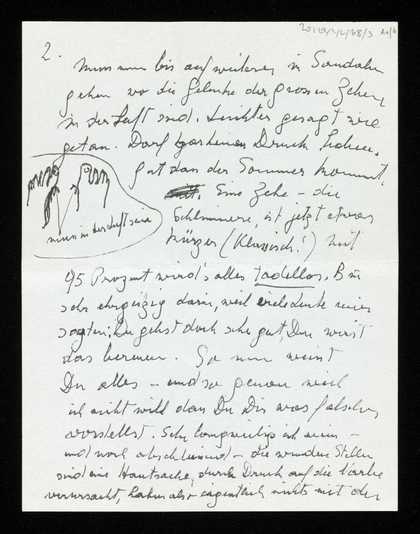 2.
Muss nun bis auf weiteres in Sandalen
gehen wo die Gelenke der grossen Zehen
in der Luft sind. Leichter gesagt wie
getan. Darf gar keinen Druck haben.
gut dass der Sommer kommt.
Eine Zehe – die
Schlimmere, ist jetzt etwas
kürzer (Klassisch!) mit
müssen in der Luft sein
95 Prozent wird's alles tadellos. Bin
sehr ehrgeizig darin, weil viele Leute mir
sagten: Du gehst doch sehr gut, Du wirst
das bereuen. So nun weisst
Du alles – und so genau weil
ich nicht will dass Du Dir was falsches
vorstellst. Sehr langweilig ist nur –
und noch abscheulich – die wunden Stellen
sind eine Hautsache, durch Druck auf die Narbe
verursacht, haben also eigentlich nichts mit der